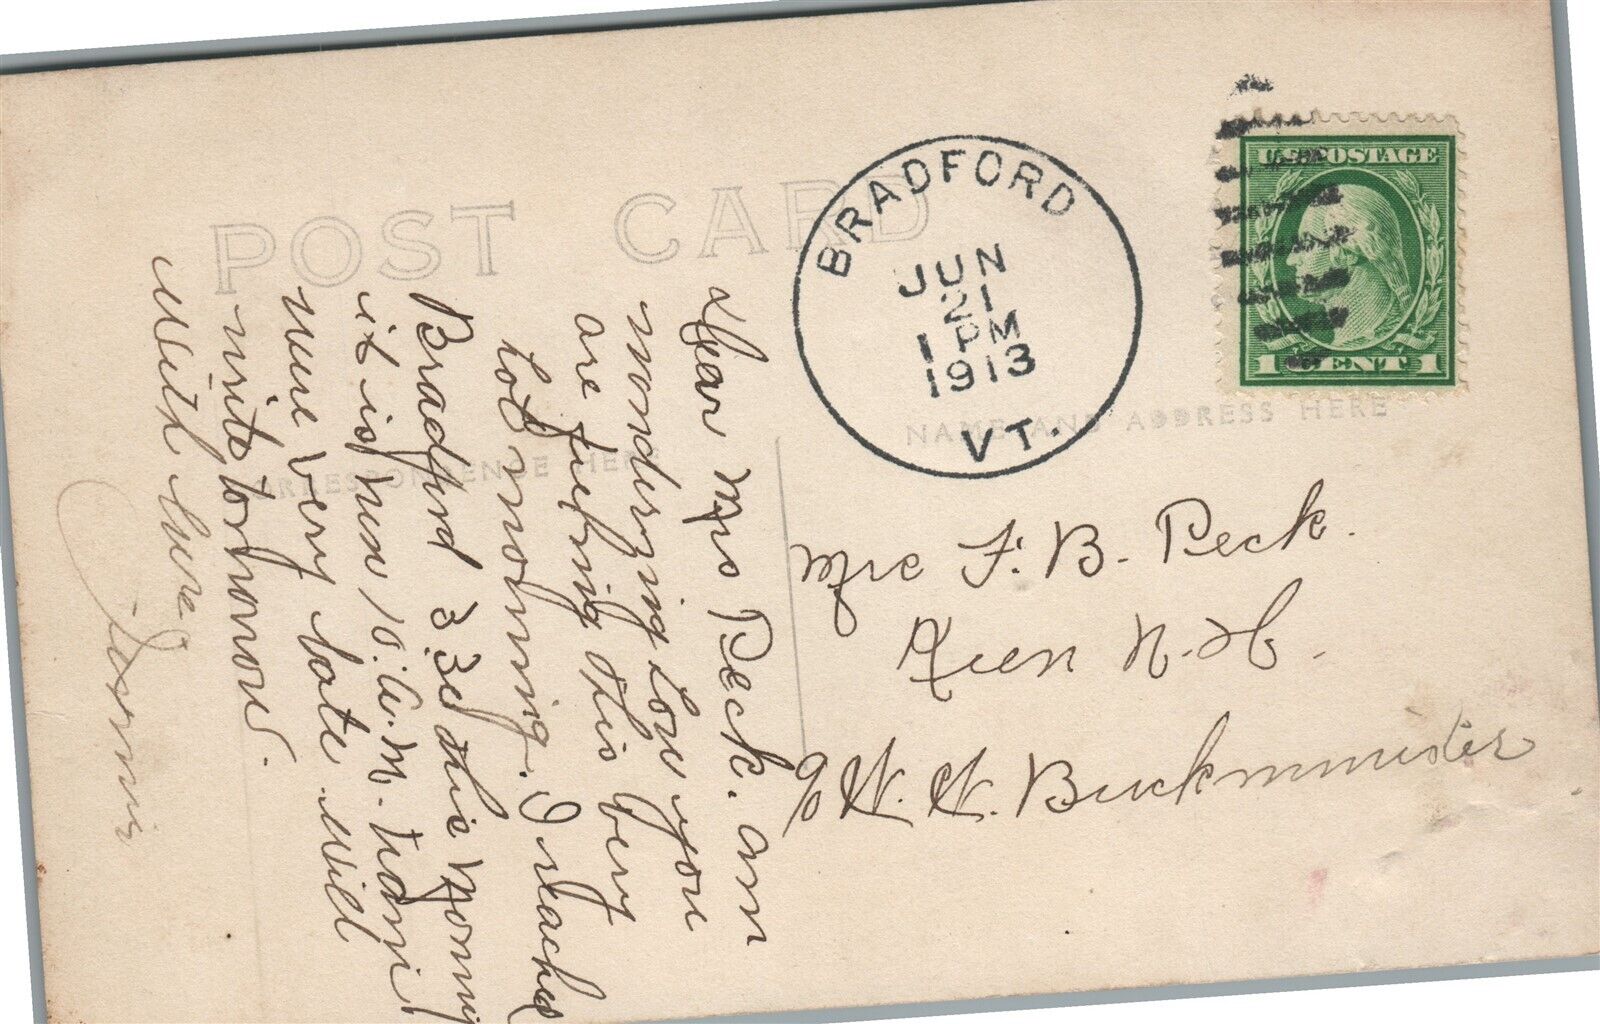 POST CARD
CORRESPONDENCE HERE
NAME AND ADDRESS HERE
BRADFORD
JUN
21
1 PM
1913
VT.
U.S. POSTAGE
1 CENT 1
Dear Mrs Peck. am
wonderzing how you
are feeling this very
hot morning. I reached
Bradford 3.30 this morning
it is now 10. A.M. trains
were very late will
write tomorrow.
With love
Mrs F. B. Peck.
Keen N. H.
c/o W. H. Buckminister